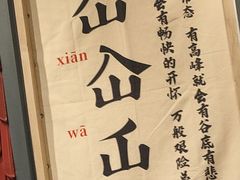 xiān
仚
wā
屲
常态 有高峰就会有谷底有悲
会有畅快的开怀 万般艰险